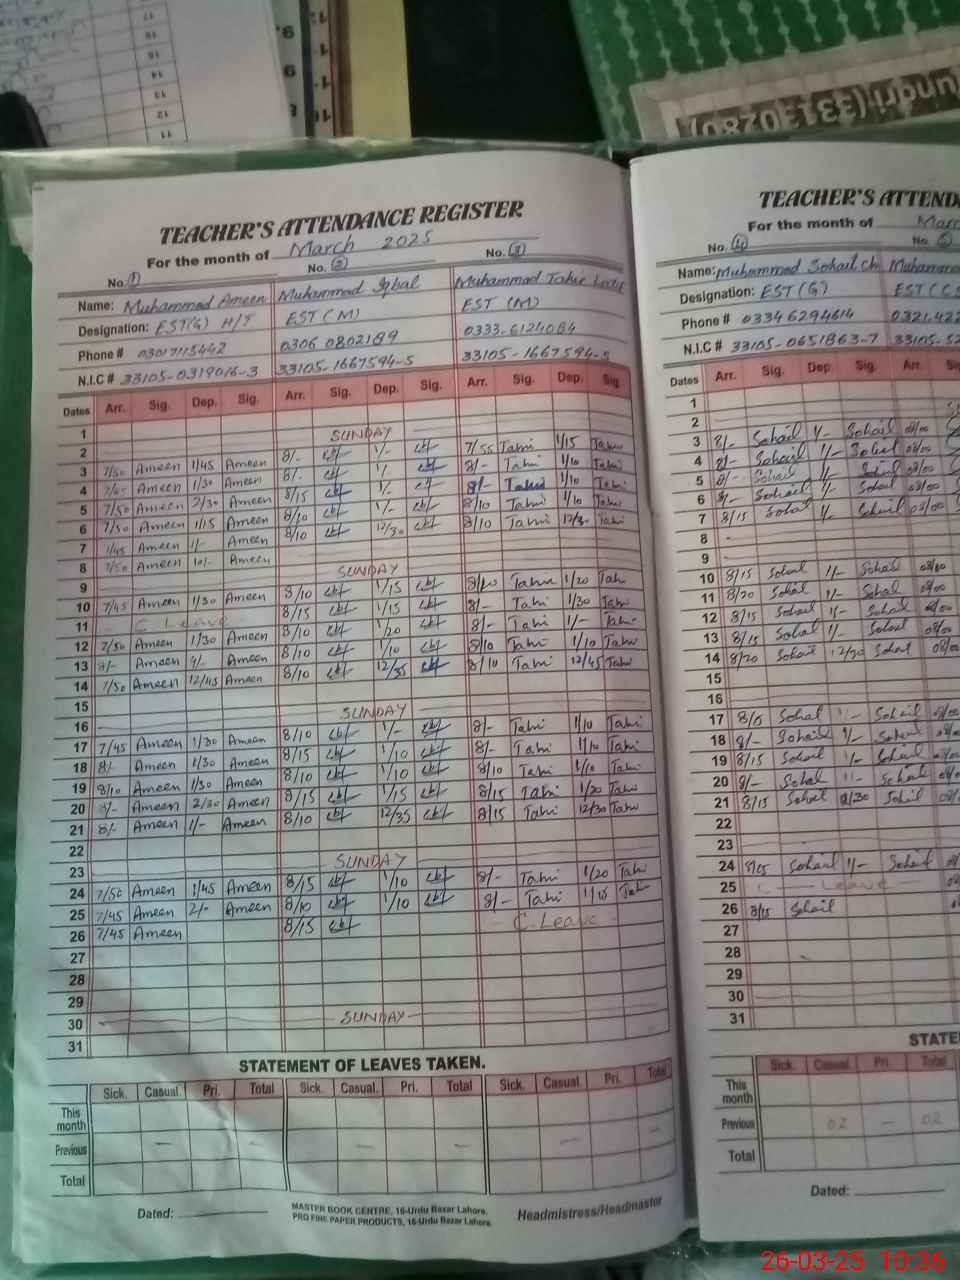 TEACHER'S ATTENDANCE REGISTER
For the month of March 2025
No. ① No. ② No. ③
Name: Muhammad Ameen Muhammad Iqbal Muhammad Tahir
Designation: EST(G) H/T EST (M) EST (M)
Phone # 03017115442 0306 0802189 0333-6124084
N.I.C # 33105-0319016-3 33105-1667594-5 33105-1667594-5
Dates Arr. Sig. Dep. Sig. Arr. Sig. Dep. Sig. Arr. Sig. Dep. Sig.
1
2 SUNDAY
3 7/50 Ameen 1/45 Ameen 8/- 1/- 7/55 Tahir 1/15 Tahir
4 Ameen 1/30 Ameen 8/- 1/- 8/- Tahir 1/10 Tahir
5 7/50 Ameen 2/30 Ameen 8/15 1/- 8/- Tahir 1/10 Tahir
6 7/50 Ameen 1/15 Ameen 8/10 1/- 8/10 Tahir 1/10 Tahir
7 7/45 Ameen 1/- Ameen 8/10 12/30 8/10 Tahir 12/30 Tahir
8 7/50 Ameen 10/- Ameen
9 SUNDAY
10 7/45 Ameen 1/30 Ameen 8/10 1/15 8/10 Tahir 1/20 Tahir
11 C. Leave 8/15 1/15 8/- Tahir 1/30 Tahir
12 7/50 Ameen 1/30 Ameen 8/10 1/20 8/- Tahir 1/- Tahir
13 8/- Ameen Ameen 8/10 1/10 8/10 Tahir 1/10 Tahir
14 7/50 Ameen 12/45 Ameen 8/10 12/35 8/10 Tahir 12/45 Tahir
15
16 SUNDAY
17 7/45 Ameen 1/30 Ameen 8/10 1/- 8/- Tahir 1/10 Tahir
18 8/- Ameen 1/30 Ameen 8/15 1/10 8/- Tahir 1/10 Tahir
19 8/10 Ameen 1/30 Ameen 8/10 1/10 8/10 Tahir 1/10 Tahir
20 8/- Ameen 2/30 Ameen 8/15 1/15 8/15 Tahir 1/20 Tahir
21 8/- Ameen 1/- Ameen 8/10 12/35 8/15 Tahir 12/30 Tahir
22
23 SUNDAY
24 7/50 Ameen 1/45 Ameen 8/15 1/10 8/- Tahir 1/20 Tahir
25 7/45 Ameen 2/- Ameen 8/10 1/10 8/- Tahir 1/10 Tahir
26 7/45 Ameen 8/15 C. Leave
27
28
29
30 SUNDAY
31
STATEMENT OF LEAVES TAKEN.
Sick. Casual. Pri. Total Sick. Casual. Pri. Total Sick. Casual. Pri. Total
This month
Previous — — — — — —
Total
Dated:
MASTER BOOK CENTRE, 16-Urdu Bazar Lahore.
PRO FINE PAPER PRODUCTS, 16-Urdu Bazar Lahore.
Headmistress/Headmaster
TEACHER'S ATTENDA
For the month of Marc
No. ④ No. ⑤
Name: Muhammad Sohail Ch Muhamma
Designation: EST (G) EST (CS
Phone # 0334 6294614 0321-422
N.I.C # 33105-0651863-7 33105-52
Dates Arr. Sig. Dep. Sig. Arr.
1
2
3 8/- Sohail 1/- Sohail 08/00
4 8/- Sohail 1/- Sohail 08/00
5 8/- Sohail 1/- Sohail 08/00
6 8/- Sohail 1/- Sohail 08/00
7 8/15 Sohail 1/- Sohail 08/00
8
9
10 8/15 Sohail 1/- Sohail 08/00
11 8/20 Sohail 1/- Sohail 08/00
12 8/15 Sohail 1/- Sohail 08/00
13 8/15 Sohail 1/- Sohail 08/00
14 8/20 Sohail 12/30 Sohail 08/00
15
16
17 8/15 Sohail Sohail 08/00
18 8/- Sohail 1/- Sohail 08/00
19 8/15 Sohail 1/- Sohail
20 8/- Sohail Sohail
21 8/15 Sohail Sohail 08/00
22
23
24 8/05 Sohail 1/- Sohail
25 C. Leave
26 8/15 Sohail
27
28
29
30
31
STATE
Sick. Casual. Pri. Total
This month
Previous 02 - 02
Total
Dated:
26-03-25 10:36